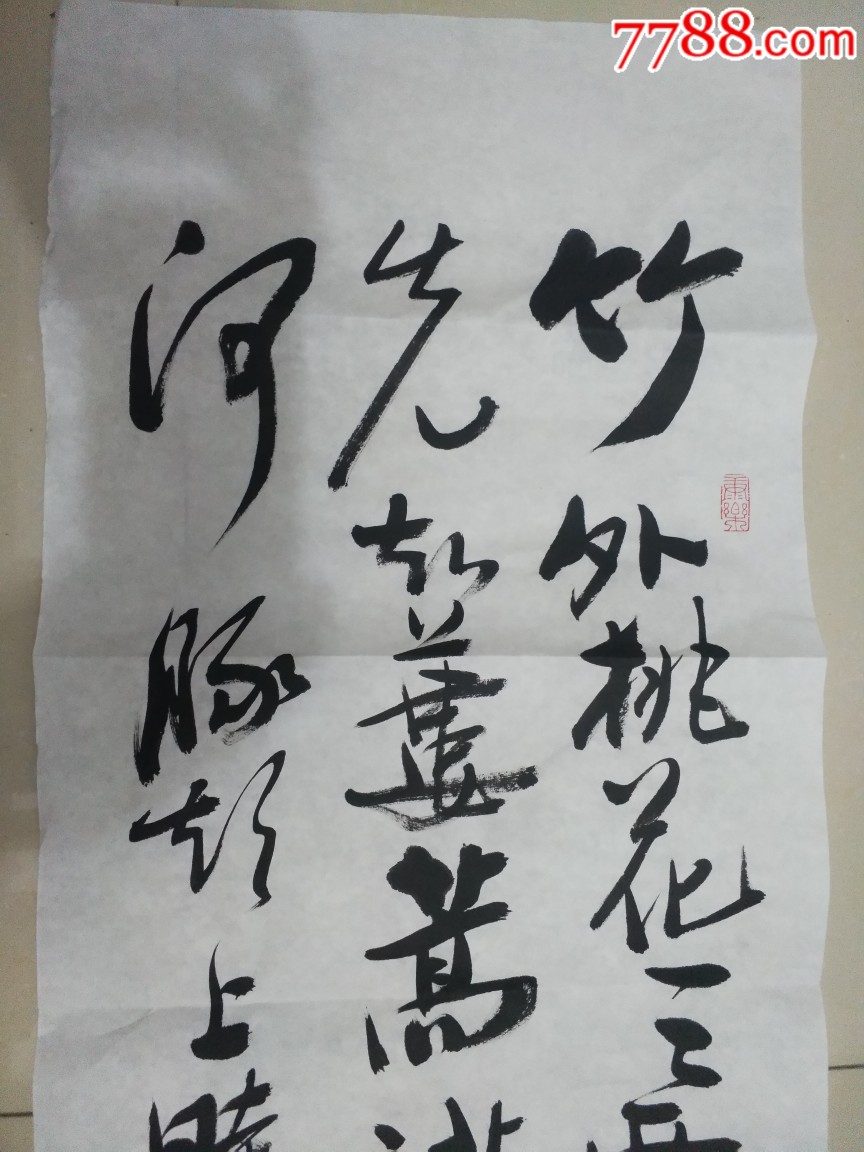 7788.com
竹外桃花三两
先知蔞蒿满
河豚欲上時